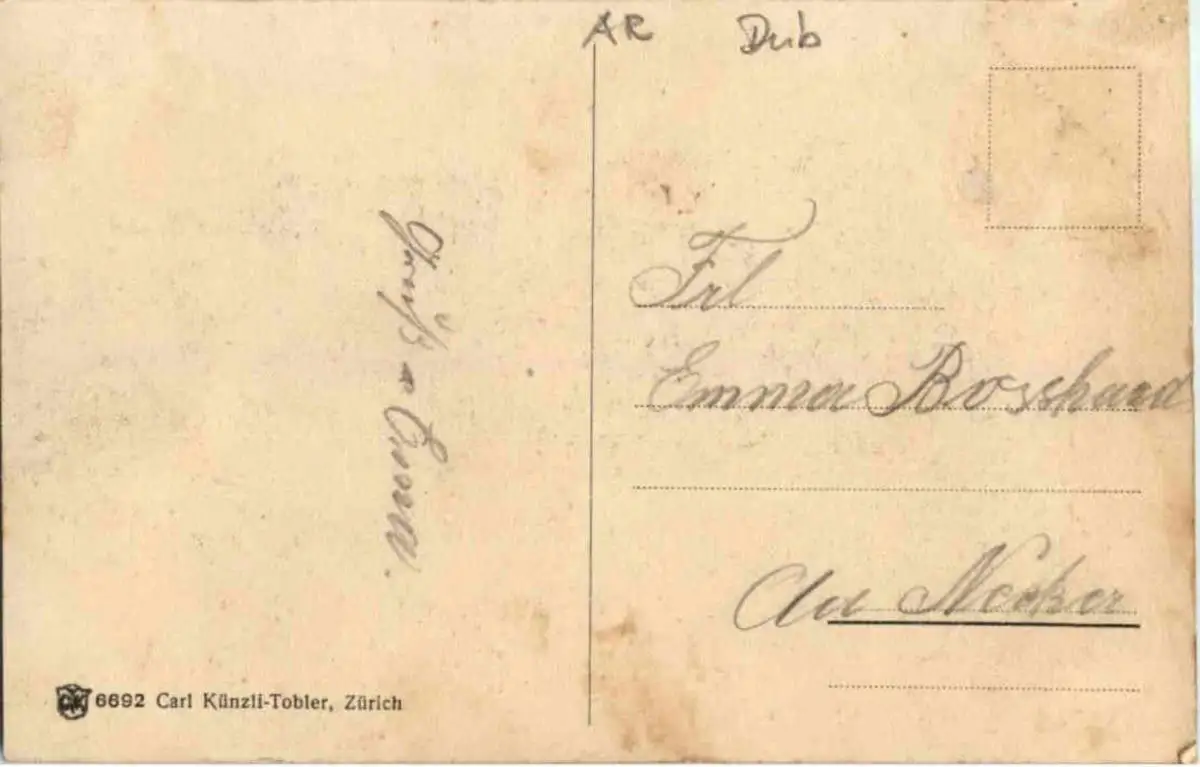 AR Dub
Gruß v. Emm.
Frl
Emma Bosshard
Au Necker
6692 Carl Künzli-Tobler, Zürich